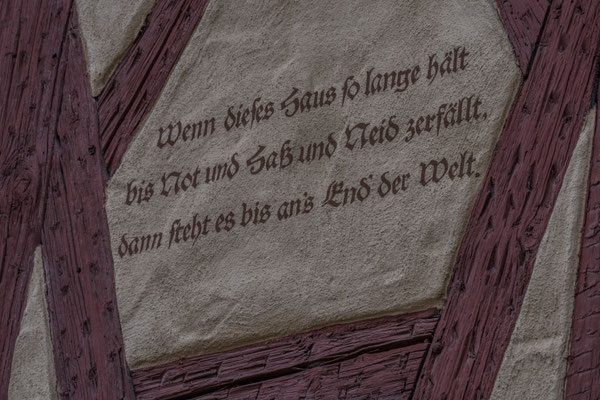 Wenn dieſes Haus ſo lange hält
bis Not und Haß und Neid zerfällt,
dann ſteht es bis an's End' der Welt.